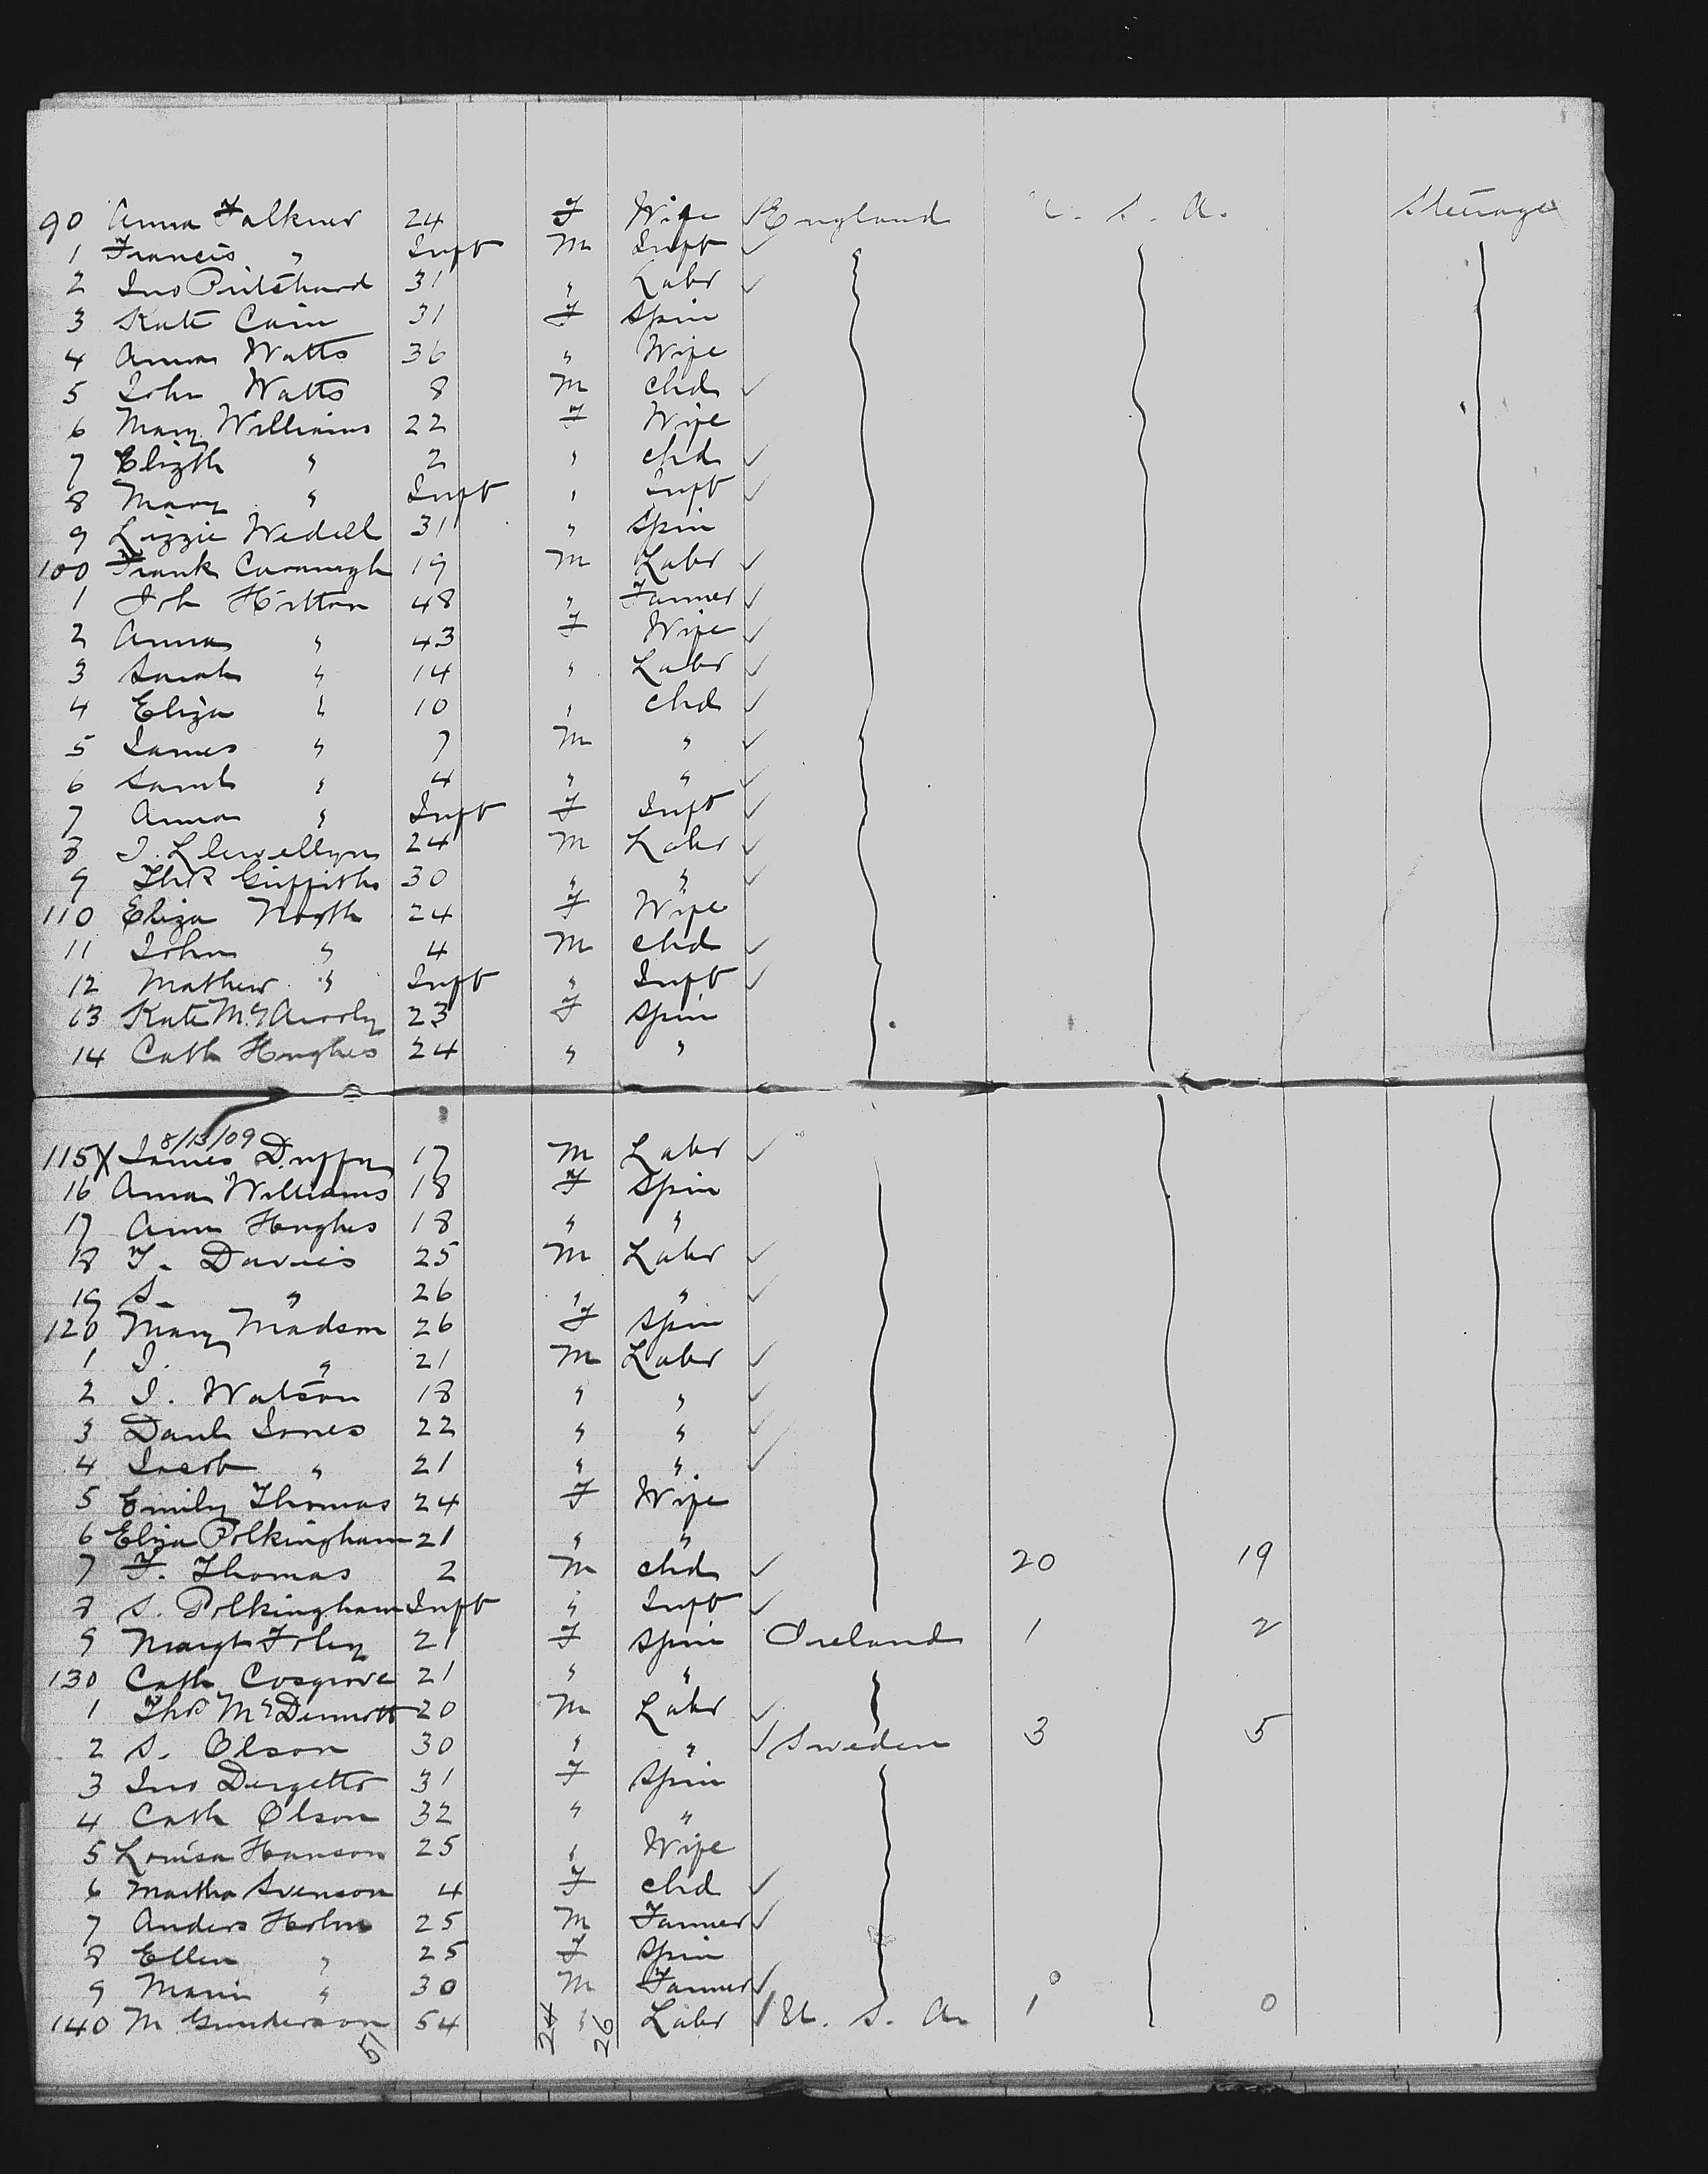 90 Anna Falkner 24 F Wife ✓ England U. S. A. Steerage
1 Francis " Inft M Inft ✓
2 Jno Pritchard 31 " Labr ✓
3 Kate Cain 31 F Spin
4 Anna Watts 36 " Wife
5 John Watts 8 M Chd ✓
6 Mary Williams 22 F Wife
7 Elizth " 2 " Chd ✓
8 Mary " Inft " Inft ✓
9 Lizzie Wedell 31 " Spin
100 Frank Cavanagh 19 M Labr ✓
1 Joh Hilton 48 " Farmer ✓
2 Anna " 43 F Wife ✓
3 Sarah " 14 " Labr ✓
4 Eliza " 10 " Chd ✓
5 James " 7 M " ✓
6 Saml " 4 " " ✓
7 Anna " Inft F Inft ✓
8 J. Llewellyn 24 M Labr ✓
9 Thos Griffiths 30 " " ✓
110 Eliza North 24 F Wife
11 John " 4 M Chd ✓
12 Mathew " Inft " Inft ✓
13 Kate 23 F Spin
14 Cath Hughes 24 " "
8/13/09
115 X James Duffy 17 M Labr ✓
16 Anna Williams 18 F Spin
17 Ann Hughes 18 " "
18 T. Davies 25 M Labr ✓
19 S. " 26 " " ✓
120 Mary Madson 26 F Spin
1 J. " 21 M Labr ✓
2 J. Watson 18 " " ✓
3 Danl Jones 22 " " ✓
4 Jacob " 21 " " ✓
5 Emily Thomas 24 F Wife
6 Eliza Polkingham 21 " "
7 F. Thomas 2 M Chd ✓ 20 19
8 S. Polkingham Inft " Inft ✓
9 Margt Foley 21 F Spin Ireland 1 2
130 Cath Cosgrove 21 " "
1 Thos McDermott 20 M Labr ✓
2 S. Olson 30 " " ✓ Sweden 3 5
3 Jno 31 F Spin
4 Cath Olson 32 " "
5 Louisa Hanson 25 " Wife
6 Martha Svenson 4 F Chd ✓
7 Anders Holm 25 M Farmer ✓
8 Ellen " 25 F Spin
9 " 30 M Farmer ✓ 0
140 M Gunderson 54 " Labr ✓ U. S. A. 1 0
51 24 26